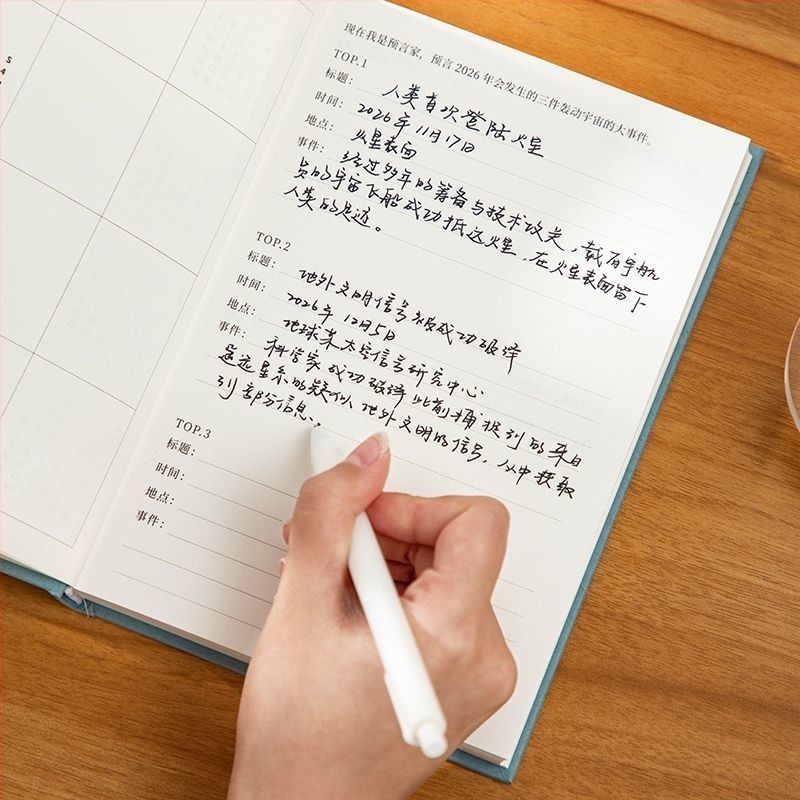 现在我是预言家，预言 2026 年会发生的三件轰动宇宙的大事件。
TOP.1
标题： 人类首次登陆火星
时间： 2026年11月17日
地点： 火星表面
事件： 经过多年的筹备与技术攻关，载有宇航
员的宇宙飞船成功抵达火星，在火星表面留下
人类的足迹。
TOP.2
标题： 地外文明信号被成功破译
时间： 2026年12月5日
地点： 地球某太空信号研究中心
事件： 科学家成功破译此前捕捉到的来自
遥远星系的疑似地外文明的信号，从中获取
到部份信息。
TOP.3
标题：
时间：
地点：
事件：